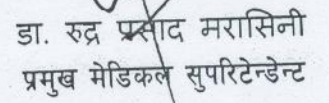 डा. रुद्र प्रसाद मरासिनी
प्रमुख मेडिकल सुपरिटेन्डेन्ट